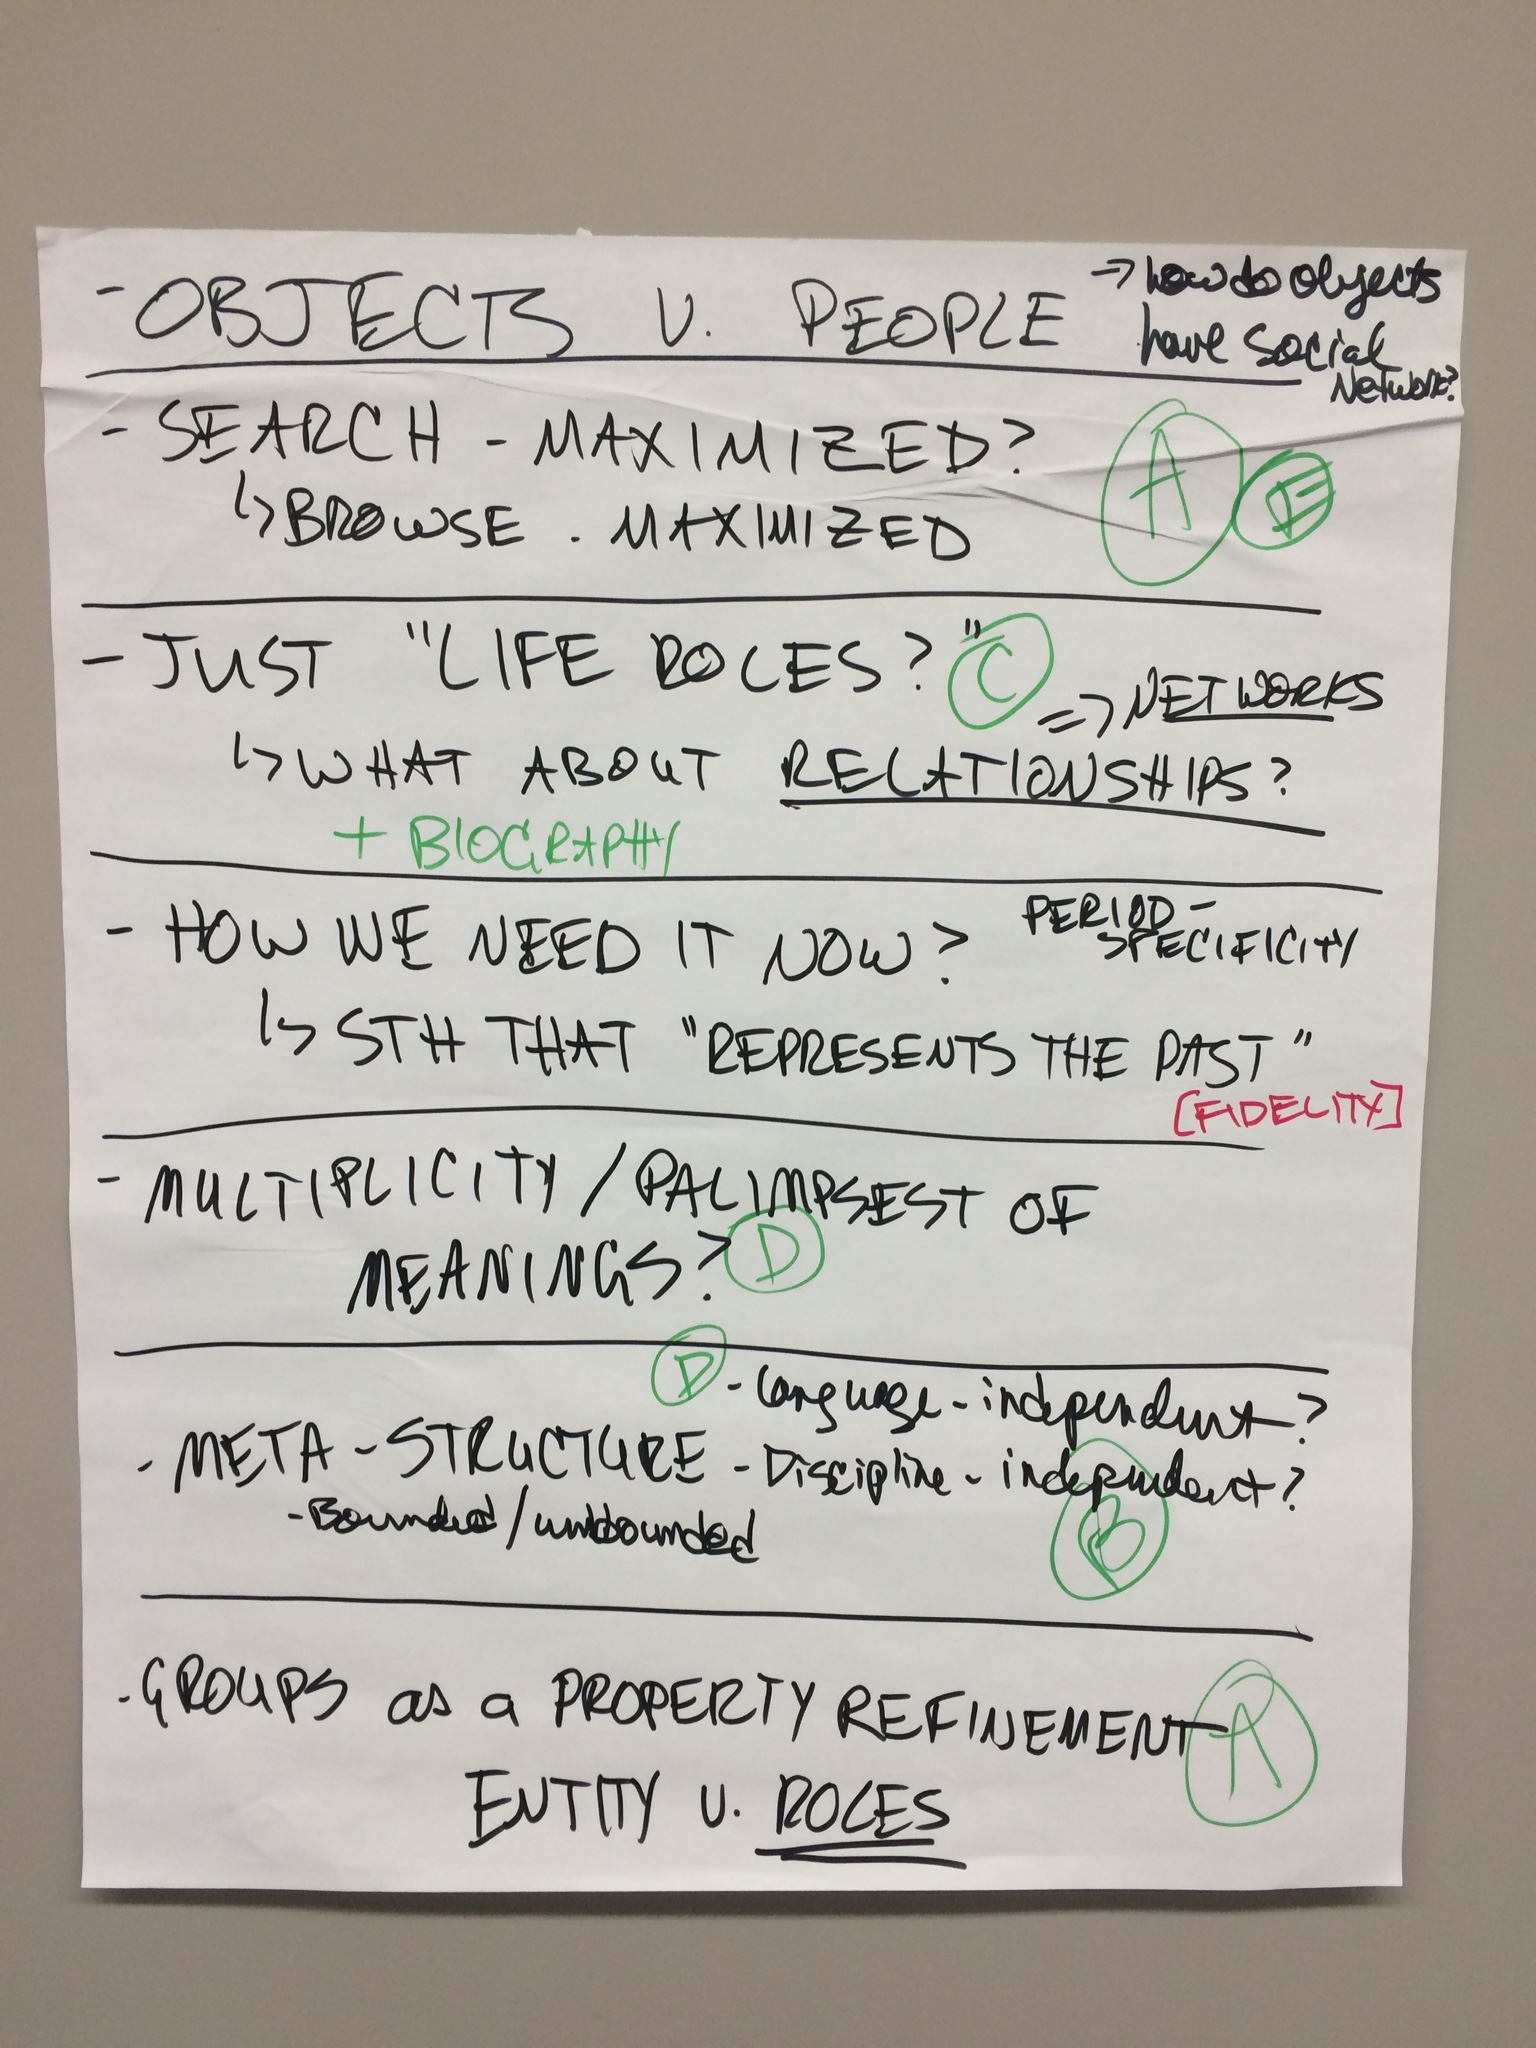 - OBJECTS V. PEOPLE → how do objects
have social
Network?
- SEARCH - MAXIMIZED? A E
↳ BROWSE - MAXIMIZED
- JUST "LIFE ROLES?" C
=> NETWORKS
↳ WHAT ABOUT RELATIONSHIPS?
+ BIOGRAPHY
- HOW WE NEED IT NOW? PERIOD-
SPECIFICITY
↳ STH THAT "REPRESENTS THE PAST"
[FIDELITY]
- MULTIPLICITY / PALIMPSEST OF
MEANINGS? D
D - Language - independent?
- META - STRUCTURE - Discipline - independent?
- Bounded / unbounded B
- GROUPS as a PROPERTY REFINEMENT A
ENTITY V. ROLES